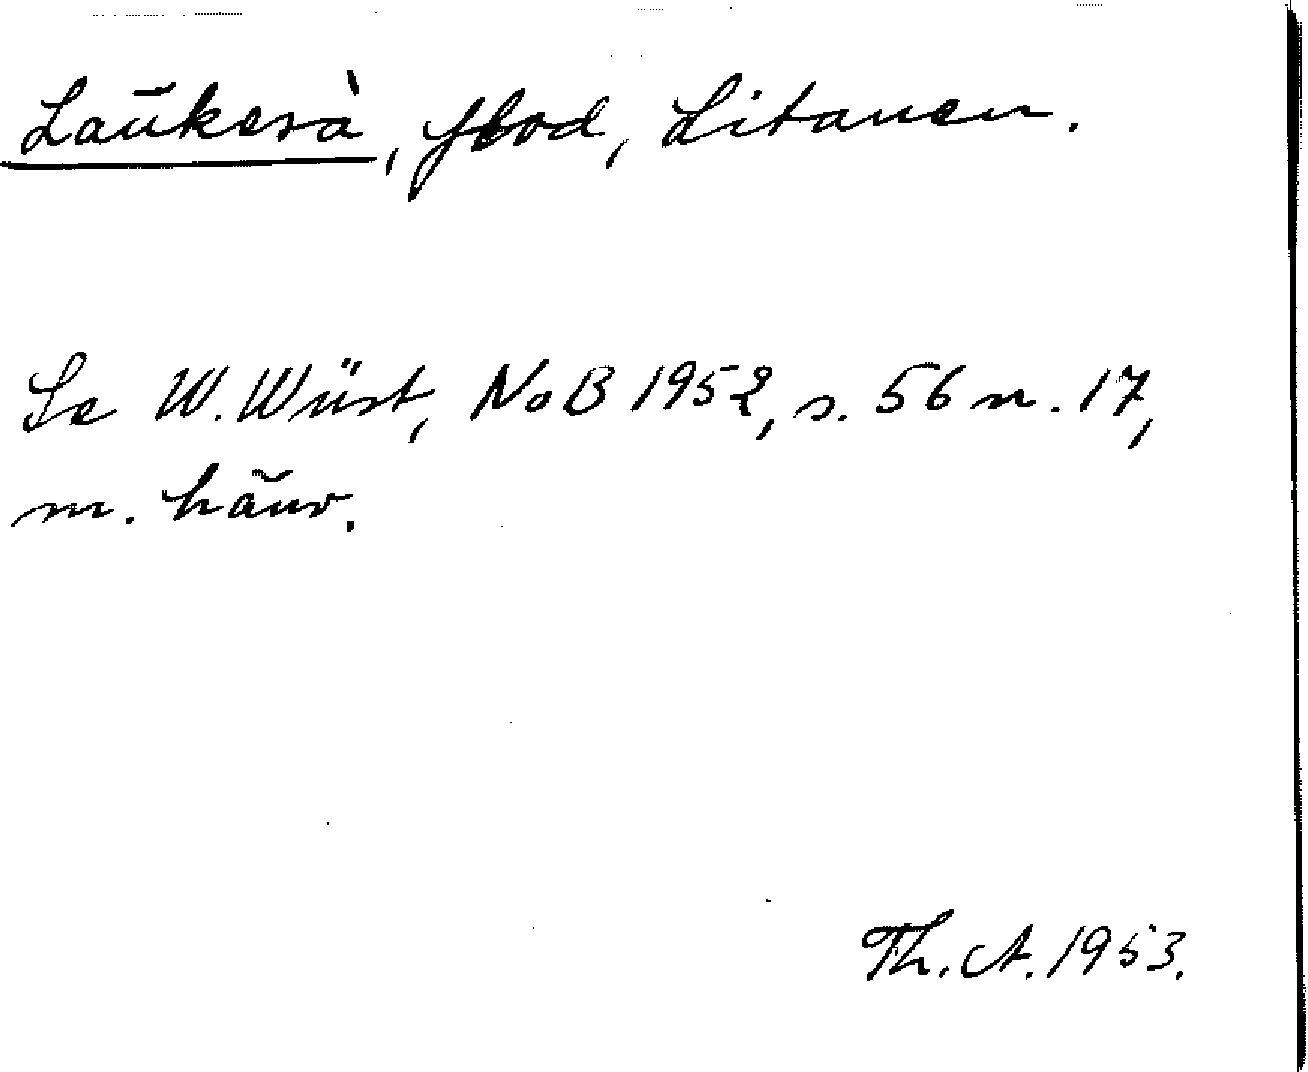 Laūkesà, flod, Litauen.
Se W. Wüst, NoB 1952, s. 56 n. 17,
m. hänv.
Th. A. 1953.